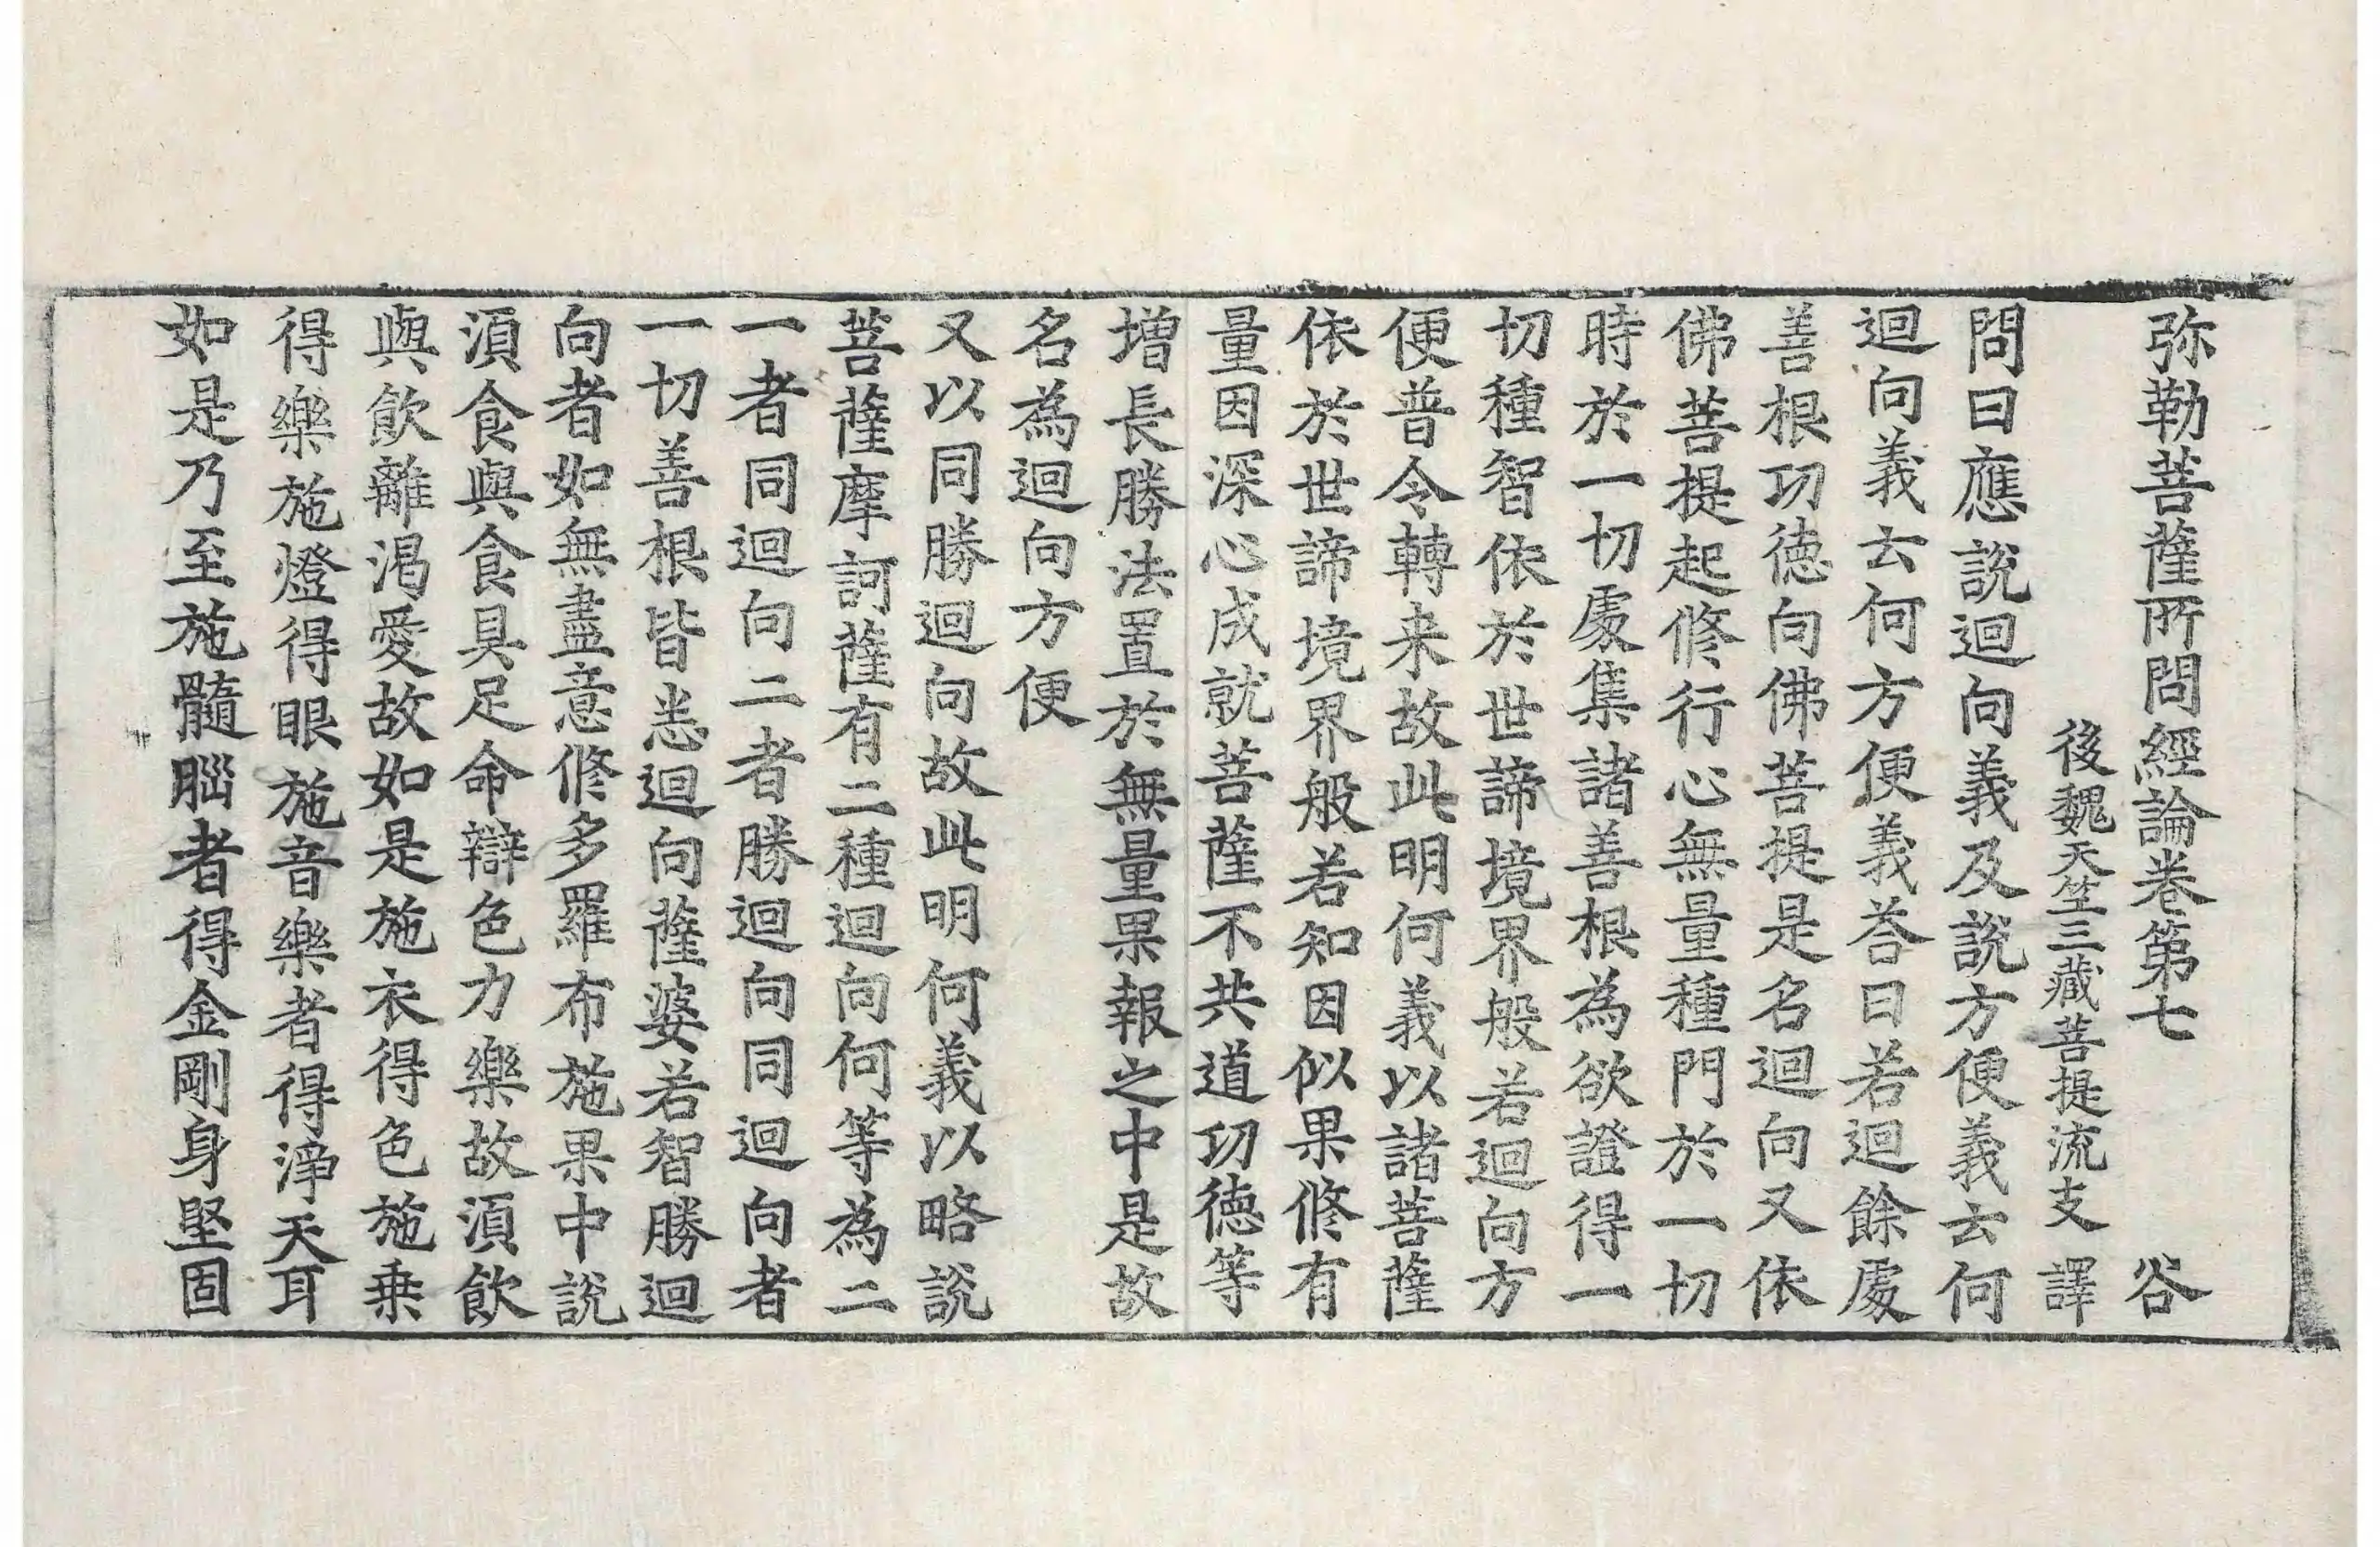 弥勒菩薩所問經論卷第七 谷
後魏天竺三藏菩提流支 譯
問曰應說迴向義及說方便義云何
迴向義云何方便義荅曰若迴餘處
善根功德向佛菩提是名迴向又依
佛菩提起修行心無量種門於一切
時於一切處集諸善根為欲證得一
切種智依於世諦境界般若迴向方
便普令轉来故此明何義以諸菩薩
依於世諦境界般若知因似果修有
量因深心成就菩薩不共道功德等
增長勝法置於無量果報之中是故
名為迴向方便
又以同勝迴向故此明何義以略說
菩薩摩訶薩有二種迴向何等為二
一者同迴向二者勝迴向同迴向者
一切善根皆悉迴向薩婆若智勝迴
向者如無盡意修多羅布施果中說
湏食與食具足命辯色力樂故湏飲
與飲離渴愛故如是施衣得色施乗
得樂施燈得眼施音樂者得淨天耳
如是乃至施髓腦者得金剛身堅固